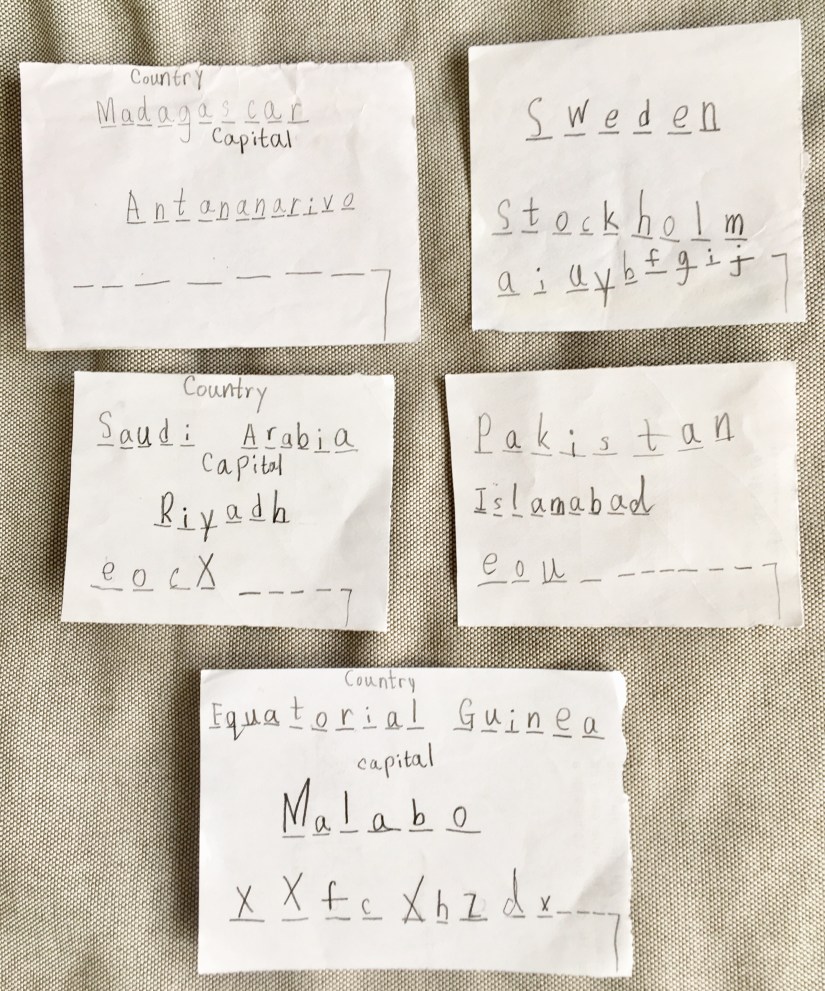 Country
Madagascar
Capital
Antananarivo
Sweden
Stockholm
a i u y b f g i j
Country
Saudi Arabia
Capital
Riyadh
e o c X
Pakistan
Islamabad
e o u
Country
Equatorial Guinea
capital
Malabo
X X f c X h z d x